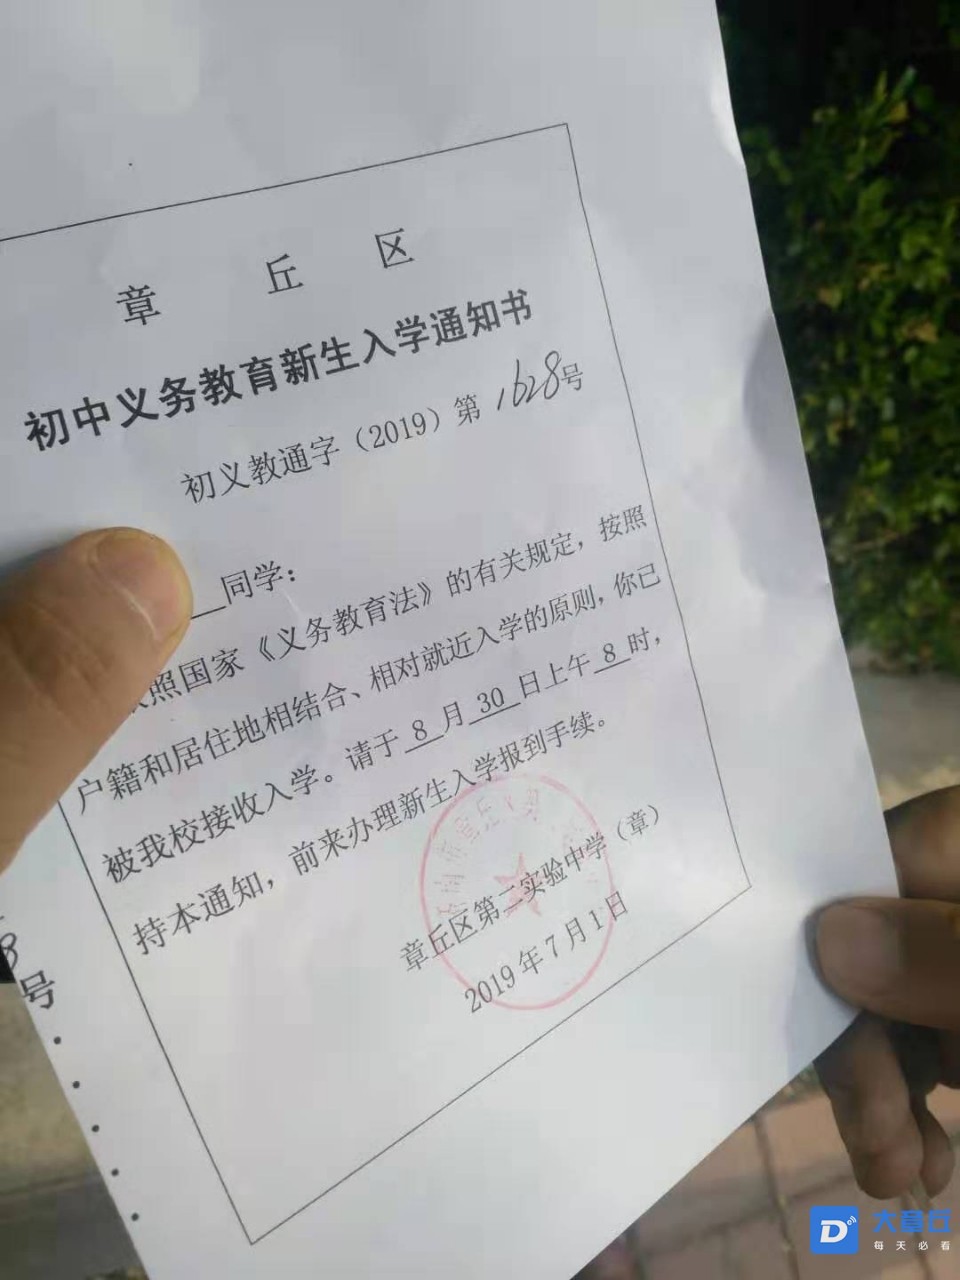 章丘区
初中义务教育新生入学通知书
初义教通字（2019）第1628号
同学：
照国家《义务教育法》的有关规定，按照
户籍和居住地相结合、相对就近入学的原则，你已
被我校接收入学。请于8月30日上午8时，
持本通知，前来办理新生入学报到手续。
章丘区第二实验中学（章）
2019年7月1日
8号
大章丘
每天必看